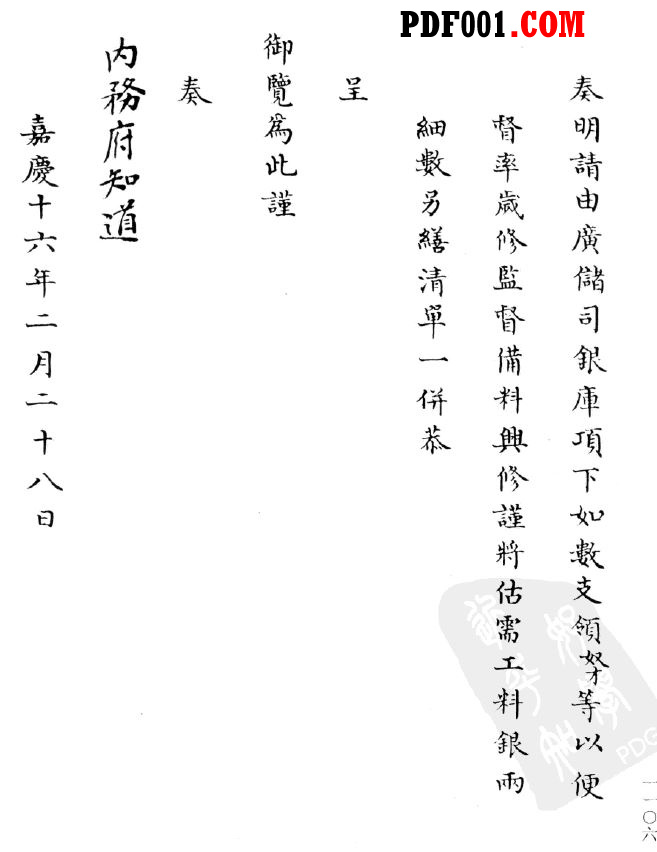 PDF001.COM
奏明請由廣儲司銀庫項下如數支領奴才等以便
督率歲修監督備料興修謹將估需工料銀兩
細數另繕清單一併恭
呈
御覽為此謹
奏
內務府知道
嘉慶十六年二月二十八日
一一〇六
PDG